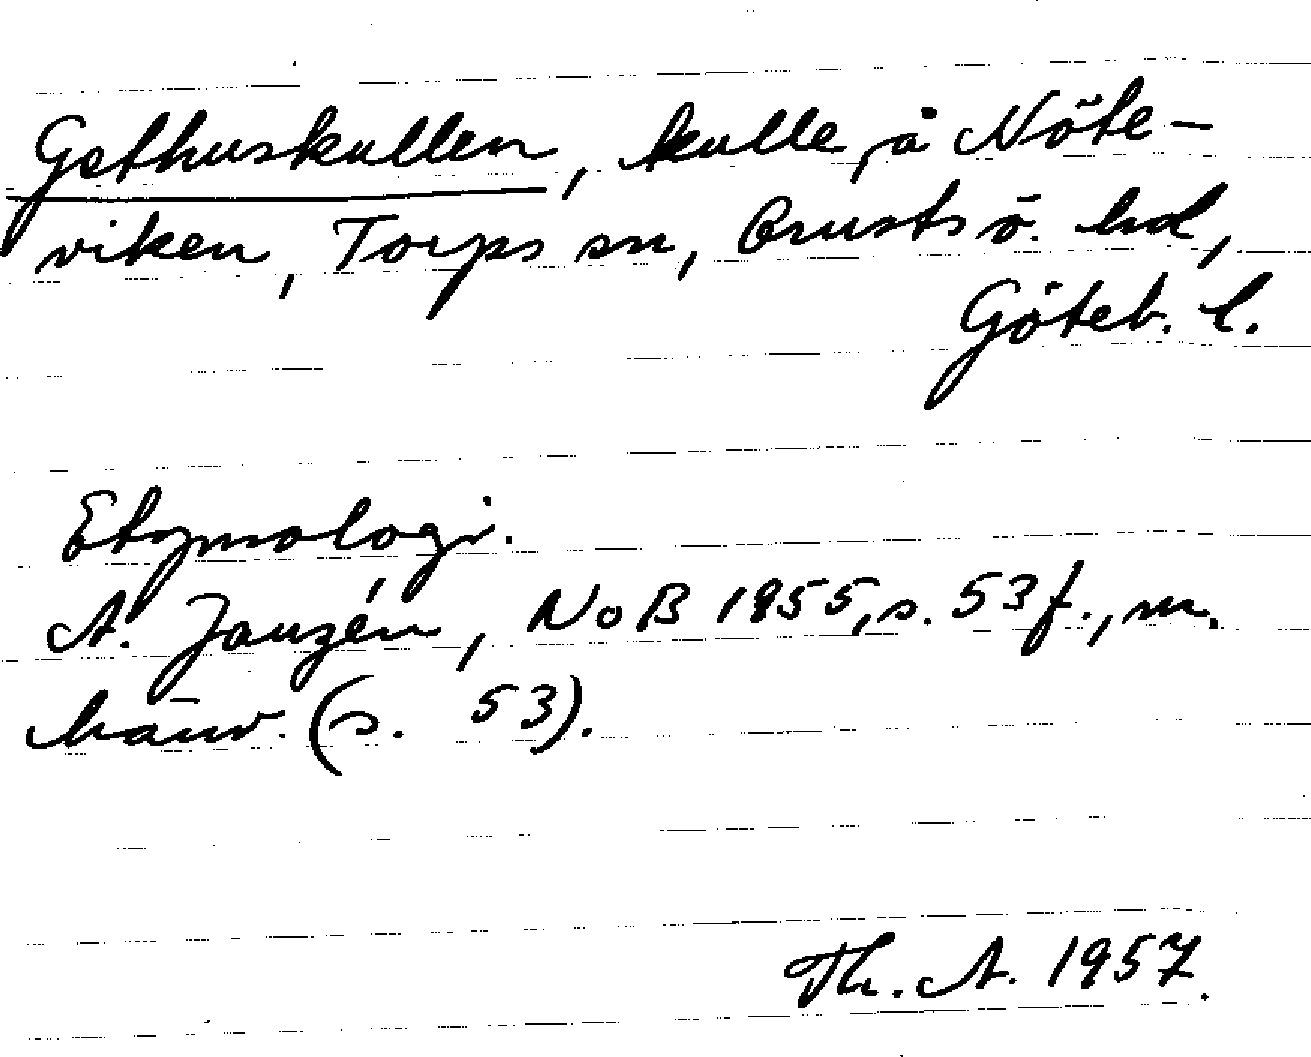 Gethuskullen, kulle å Nöte-
viken, Torps sn, Orusts ö. hd,
Göteb. l.
Etymologi.
A. Janzén, NoB 1955, s. 53 f., m.
hänv. (s. 53).
Th. A. 1957.